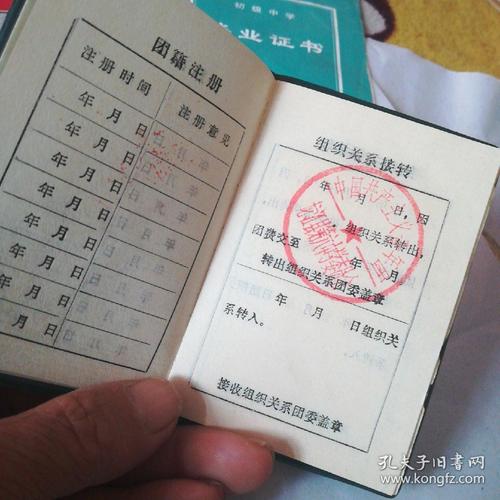 初级中学
毕业证书
团籍注册
注册时间 注册意见
年 月 日
年 月 日
年 月 日
年 月 日
年 月 日
年 月 日
年 月 日
年 月 日
组织关系接转
年 月 日,因
组织关系转出,
团费交至 年 月。
转出组织关系团委盖章
年 月 日组织关
系转入。
接收组织关系团委盖章
中国共产主义
孔夫子旧书网
www.kongfz.com